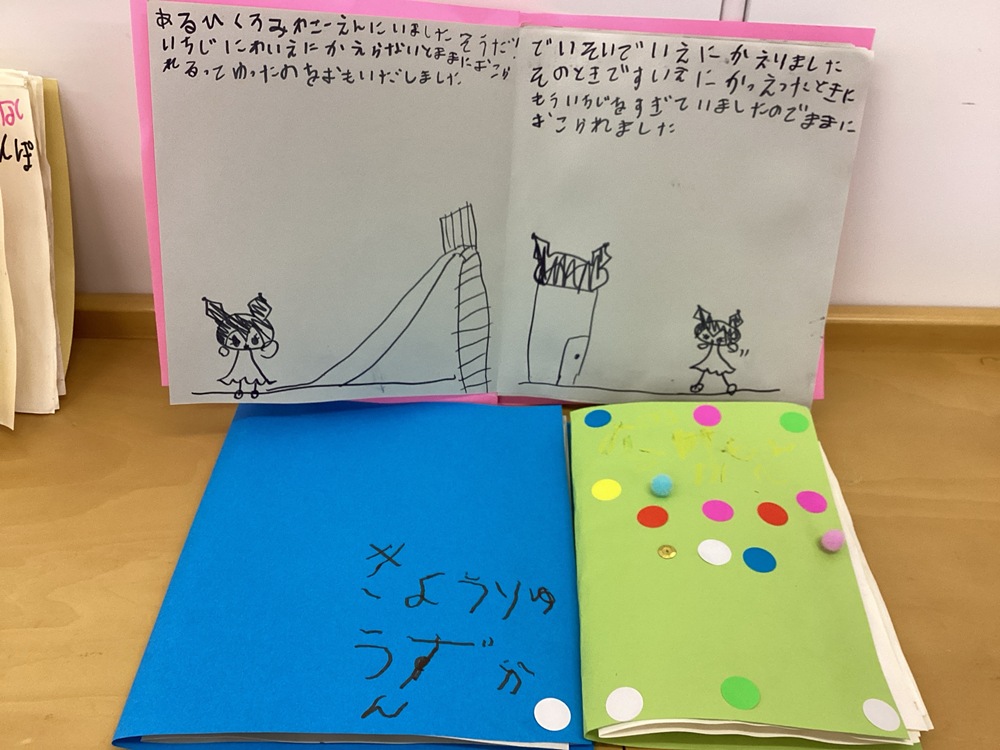 あるひくろみわこーえんにいました そうだ!
いちじにわいえにかえらないとままにおこら
れるってゆったのをおもいだしました
でいそいでいえにかえりました
そのときですいえにかっえったときに
もういちじをすぎていましたのでままに
おこられました
んぽ
きようりゆ
うずか
ん